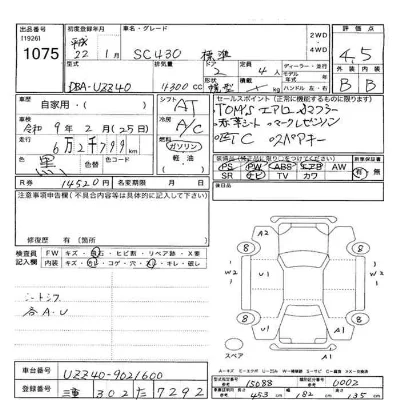 出品番号 初度登録年月 車名・グレード 2WD 4WD 評価点
(19261
1075 平成 22 1月 SC430 標準 4.5
型式 ドア 定員 ディーラー・並行 外装 内装
DBA-UZZ40 4300cc 2 4人 モデル年式 年
幌型 積載量 kg ハンドル 左・右 B B
車歴 自家用・ シフト AT セールスポイント(正常に機能するものに限ります)
車検 令和 9年 2月(25日) 冷房 A/C TOM'S エアロ・マフラー
走行 6万2千799km ガソリン ・赤革シート・マークレビンソン
色 黒 色替 色コード 軽油・ ・ETC ・スペアキー
R券 14520円 名変期限 月 日
PS PW ABS エアB AW 新車保証書
SR ナビ TV カワ 有 無
注意事項申告欄(不具合内容等は具体的に記入して下さい) 検査員
修復歴 有(箇所
検査員記入欄 FW キズ・石・ヒビ割・リペア跡・X要
内装 キズ・コゲ・穴・キレ・破レ
シートシワ
各A・U
A2 U1 W2 U1 W2 A1 A1
8 8 8 8
スペア
車台番号 UZZ40-9021600
登録番号 三重 302 た 7292
型式指定番号 15088 類別区分番号 0002
車両寸法 長さ 453cm 幅 182cm 高さ 135cm